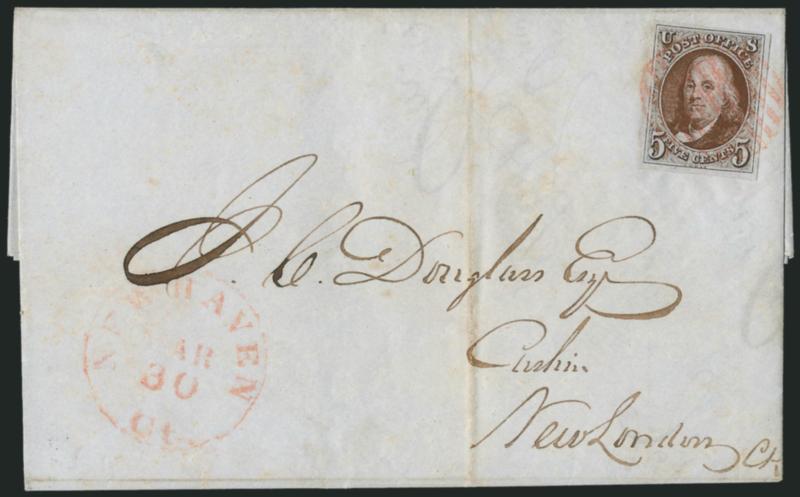 U S
POST OFFICE
5 FIVE CENTS 5
J. C. Douglass Esq
Cashr.
New London Ct.
NEW HAVEN
MAR
30
Ct.